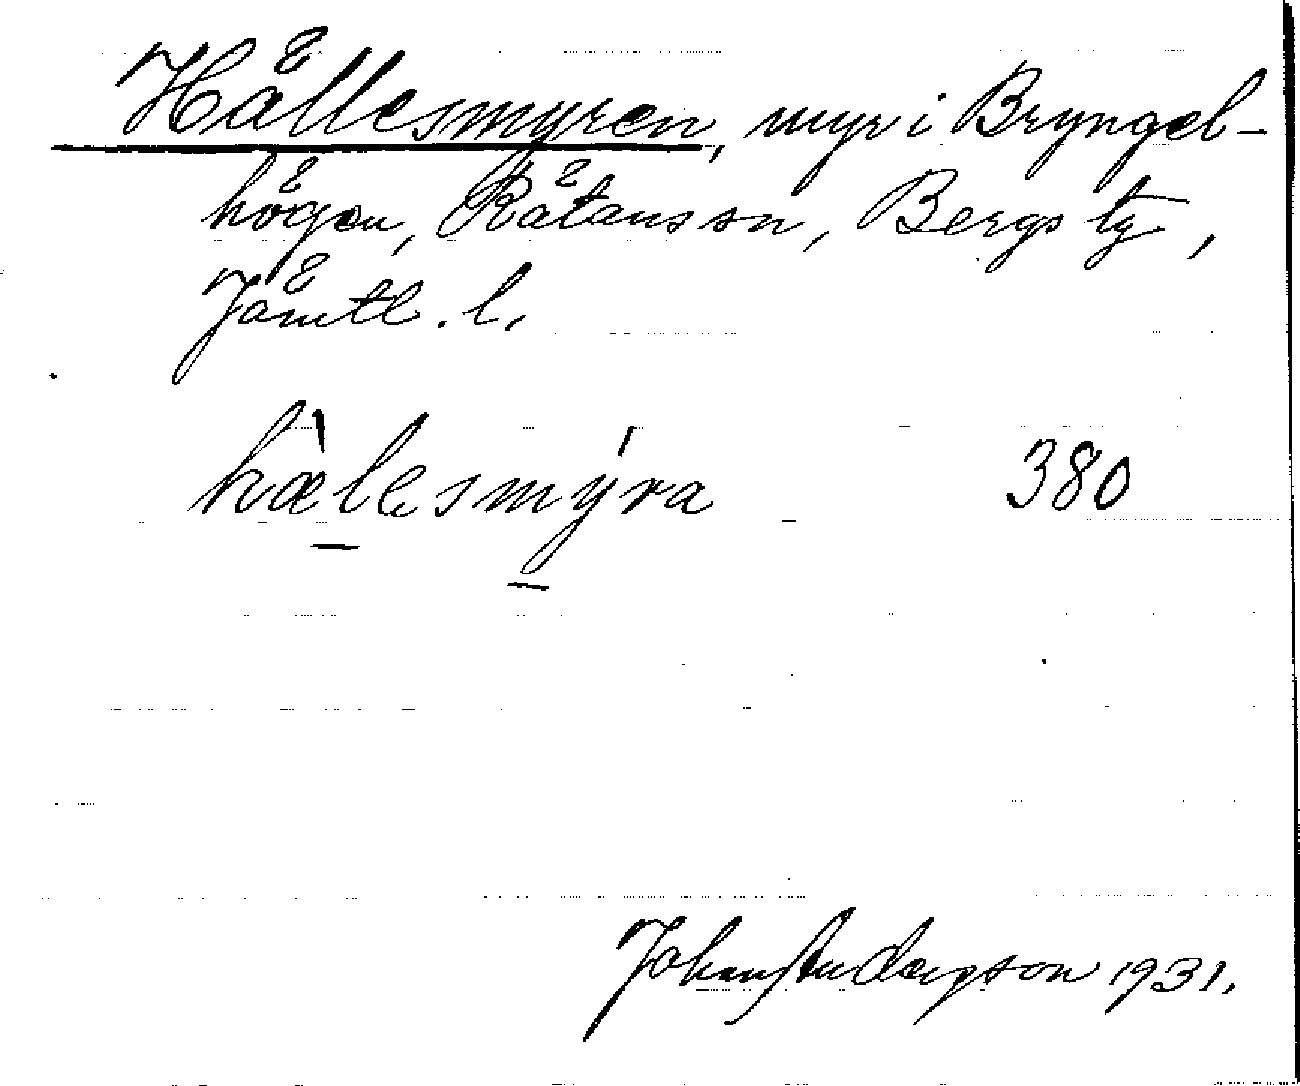 Hällesmyren, myr i Bryngel-
högen, Rätans sn, Bergs tg,
Jämtl. l.
hæ̀lesmýra 380
Johan Anderson 1931.